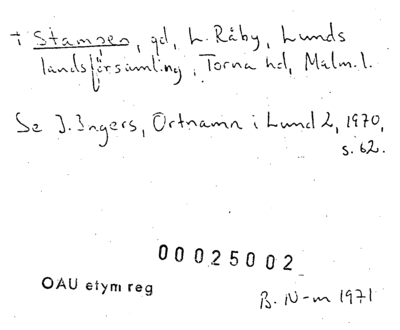 † Stampen, gd, L. Råby, Lunds
landsförsamling, Torna hd, Malm. l.
Se J. Ingers, Ortnamn i Lund 2, 1970,
s. 62.
00025002
OAU etym reg
B. N-m 1971